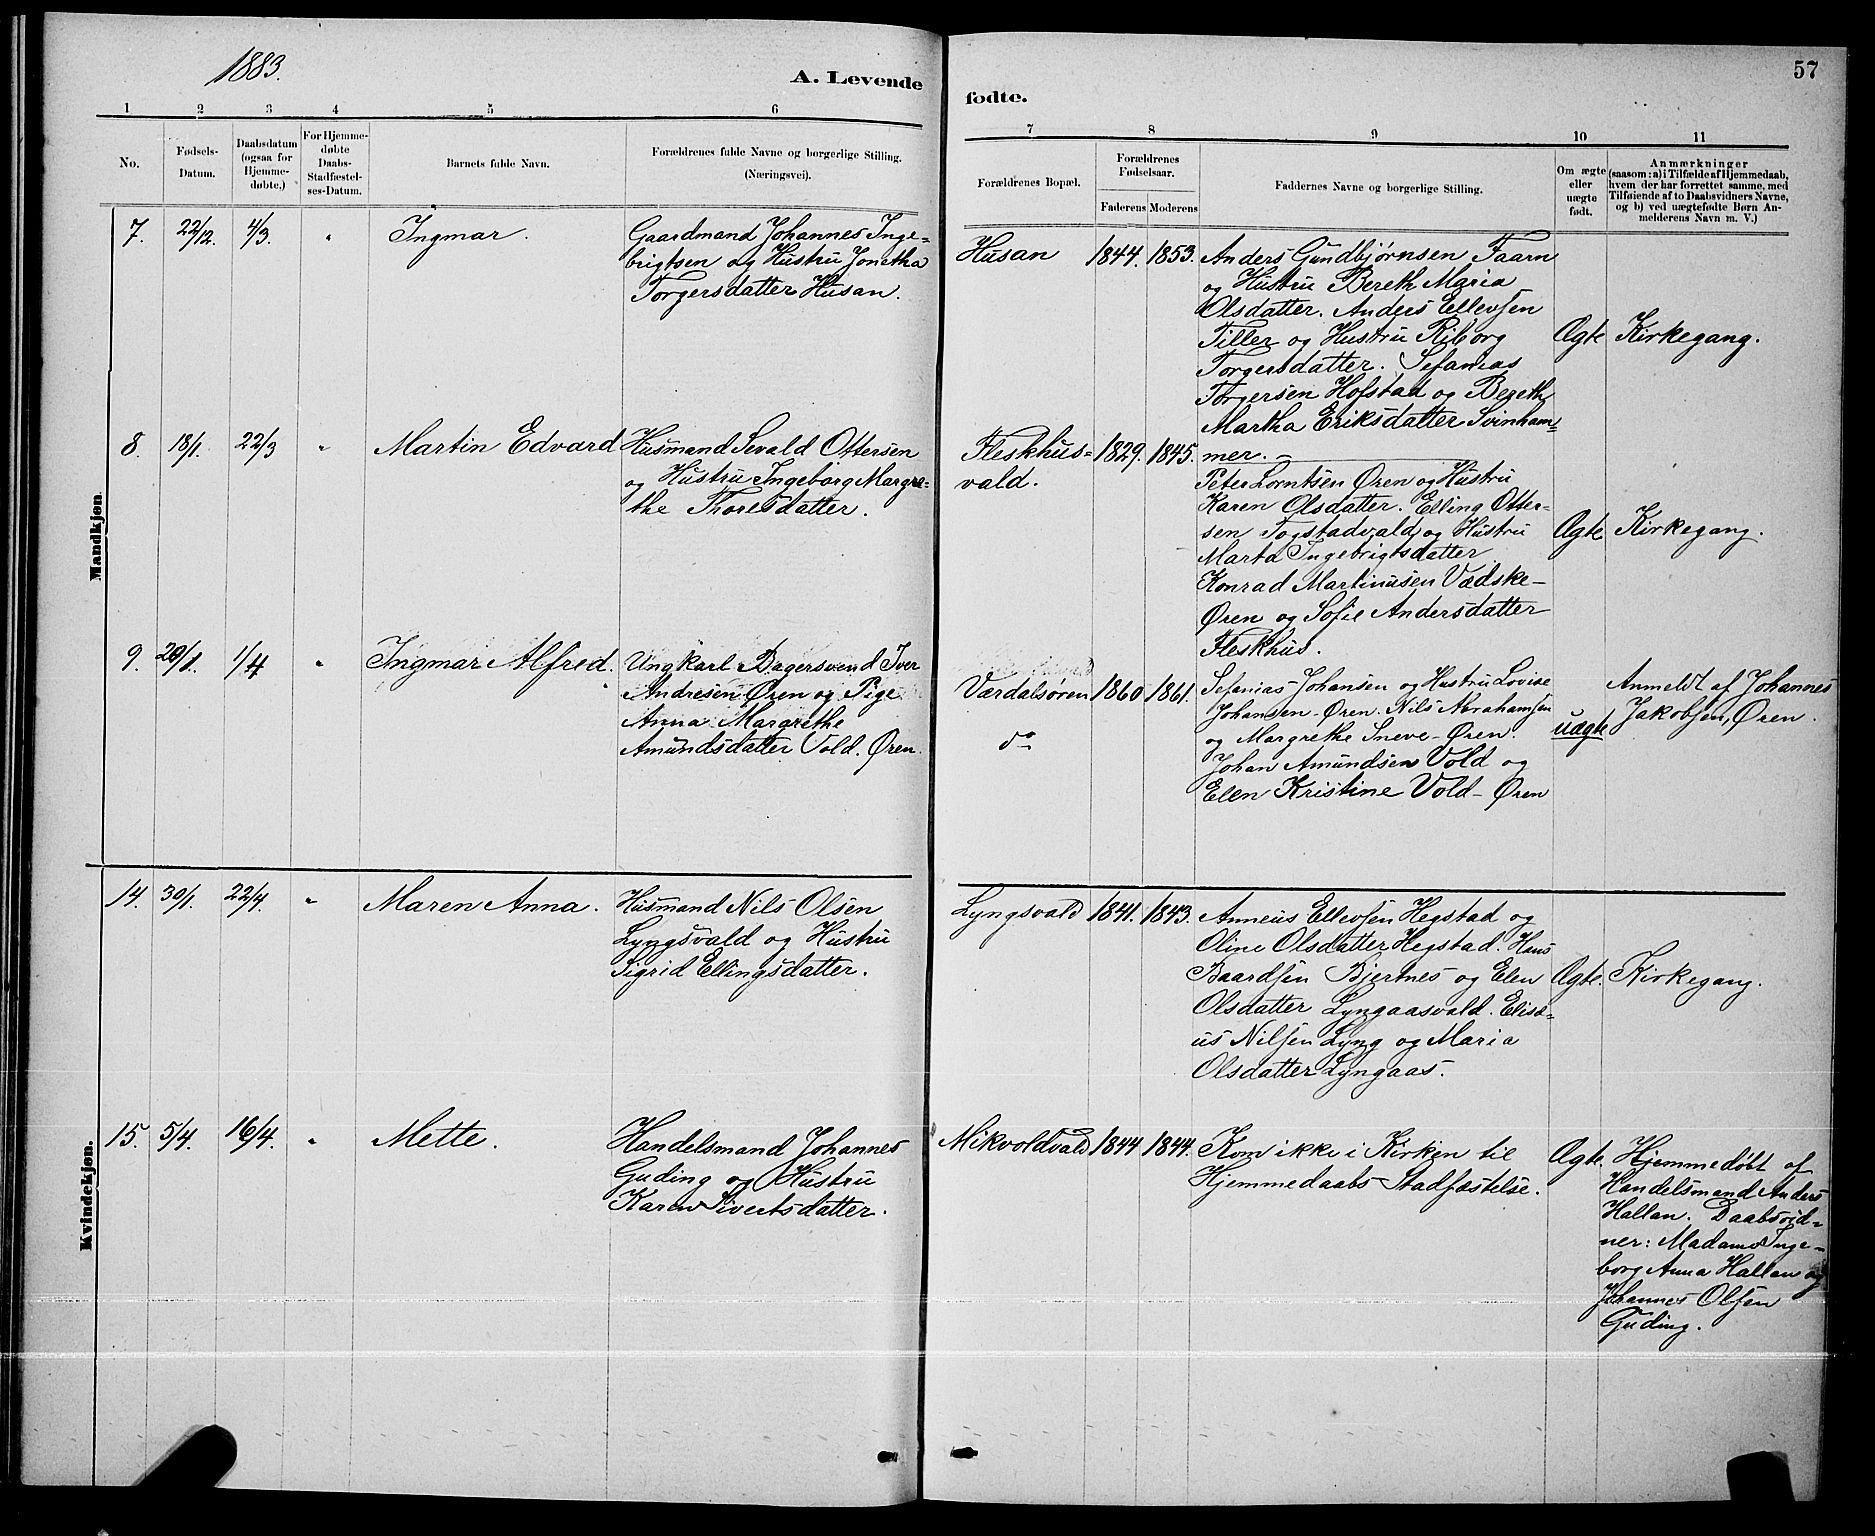 1883.
A. Levende
fødte.
57
1 2 3 4 5 6 7 8 9 10 11
No.
Fødsels-
Datum.
Daabsdatum
(ogsaa for
Hjemme-
døbte.)
For Hjemme-
døbte
Daabs-
Stadfæstel-
ses-Datum.
Barnets fulde Navn.
Forældrenes fulde Navne og borgerlige Stilling.
(Næringsvei).
Forældrenes Bopæl.
Forældrenes
Fødselsaar.
Faderens Moderens
Faddernes Navne og borgerlige Stilling.
Om ægte
eller
uægte
født.
Anmærkninger
(saasom: a) i Tilfælde af Hjemmedaab,
hvem der har forrettet samme, med
Tilføiende af to Daabsvidners Navne,
og b) ved uægtefødte Børn An-
melderens Navn m. V.)
Mandkjøn.
7. 22/12. 4/3. " Ingmar.
Gaardmand Johannes Inge-
brigtsen og Hustru Jonetha
Torgersdatter Husan.
Husan 1844. 1853.
Anders Gundbjørnsen Faarn
og Hustru Bereth Maria
Olsdatter. Anders Ellevsen
Tiller og Hustru Riborg
Torgersdatter. Sefanias
Torgersen Hofstad og Bereth
Martha Eriksdatter Svinham-
mer.
Ægte Kirkegang.
8. 18/1. 22/3 " Martin Edvard
Husmand Sevald Ottersen
og Hustru Ingeborg Margre-
the Thoresdatter.
Fleskhus-
vald.
1829. 1845.
Peter Lorntsen Øren og Hustru
Karen Olsdatter. Elling Otter-
sen Togstadvald og Hustru
Marta Ingebrigtsdatter.
Konrad Martinusen Vædske-
Øren og Sofie Andersdatter
Fleskhus.
Ægte Kirkegang.
9. 20/1. 1/4 " Ingmar Alfred.
Ungkarl Bagersvend Iver
Andresen Øren og Pige
Anna Margrethe
Amundsdatter Vold. Øren.
Værdalsøren
do
1860 1861.
Sefanias Johansen og Hustru Lovise
Johansen-Øren. Nils Abrahamsen
og Margrethe Sneve-Øren.
Johan Amundsen Vold og
Elen Kristine Vold-Øren
uægte
Anmeldt af Johannes
Jakobsen, Øren.
Kvindekjøn.
14. 30/1. 22/4. " Maren Anna.
Husmand Nils Olsen
Lyngsvald og Hustru
Sigrid Ellingsdatter.
Lyngsvald 1841. 1843.
Anneus Ellevsen Hegstad og
Oline Olsdatter Hegstad. Hans
Baardsen Bjertnes og Elen
Olsdatter Lyngaasvald. Elisæ-
us Nilsen Lyng og Maria
Olsdatter Lyngaas.
Ægte. Kirkegang.
15. 5/4. 16/4. " Mette.
Handelsmand Johannes
Guding og Hustru
Karen Sivertsdatter.
Mikvoldvald 1844 1844.
Kom ikke i Kirken til
Hjemmedaabs-Stadfæstelse.
Ægte.
Hjemmedøbt af
Handelsmand Anders
Hallan. Daabsvid-
ner: Madame Inge-
borg Anna Hallan og
Johannes Olsen
Guding.